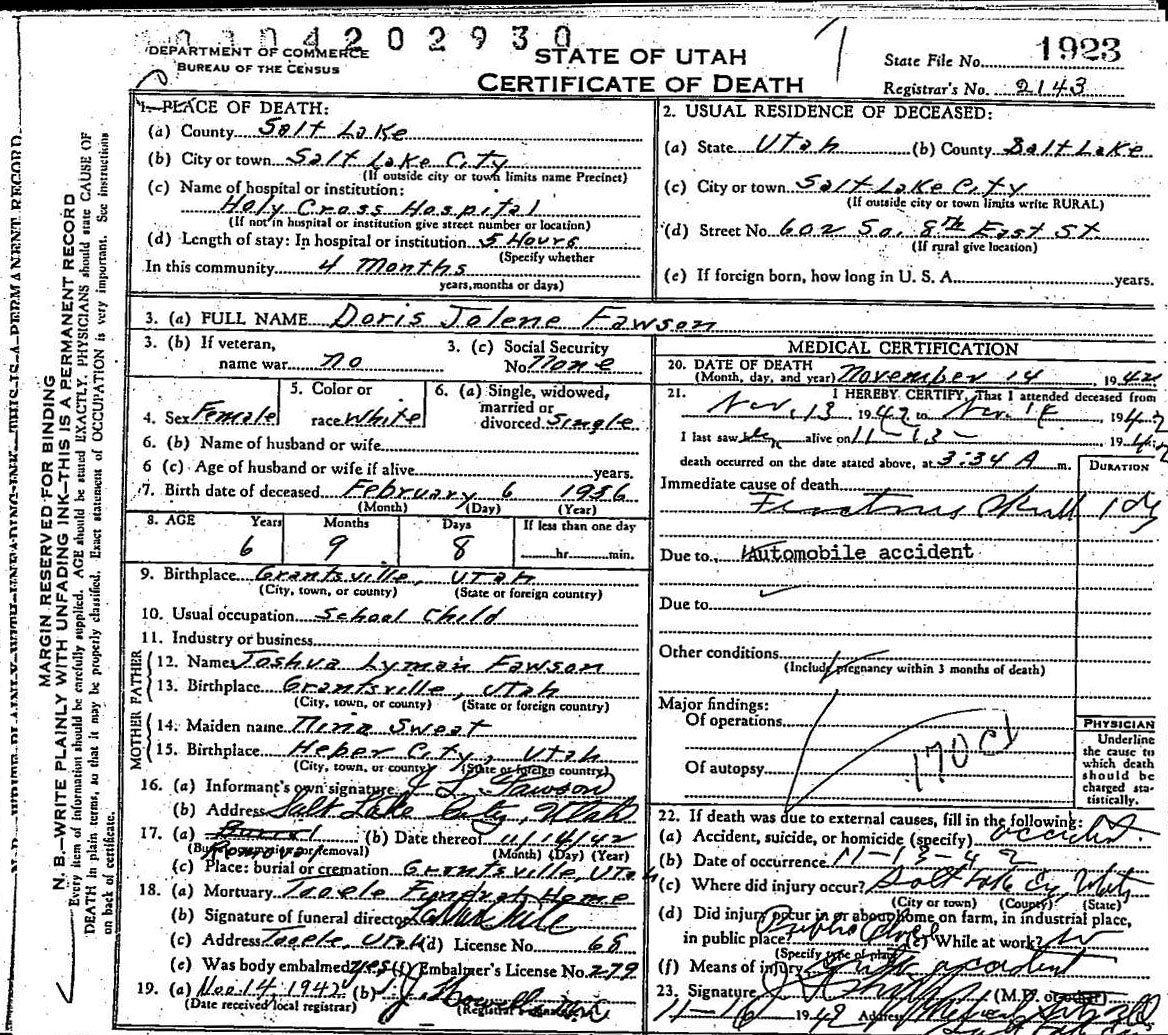 0304202930
DEPARTMENT OF COMMERCE
BUREAU OF THE CENSUS
STATE OF UTAH
CERTIFICATE OF DEATH
State File No. 1923
Registrar's No. 2143
MARGIN RESERVED FOR BINDING
N. B.—WRITE PLAINLY WITH UNFADING INK—THIS IS A PERMANENT RECORD
Every item of information should be carefully supplied. AGE should be stated EXACTLY. PHYSICIANS should state CAUSE OF
DEATH in plain terms, so that it may be properly classified. Exact statement of OCCUPATION is very important. See instructions
on back of certificate.
1. PLACE OF DEATH:
(a) County Salt Lake
(b) City or town Salt Lake City
(If outside city or town limits name Precinct)
(c) Name of hospital or institution:
Holy Cross Hospital
(If not in hospital or institution give street number or location)
(d) Length of stay: In hospital or institution 5 Hours
(Specify whether
In this community 4 Months
years, months or days)
2. USUAL RESIDENCE OF DECEASED:
(a) State Utah (b) County Salt Lake
(c) City or town Salt Lake City
(If outside city or town limits write RURAL)
(d) Street No 602 So. 8th East St.
(If rural give location)
(e) If foreign born, how long in U. S. A. years.
3. (a) FULL NAME Doris Jolene Fawson
3. (b) If veteran,
name war no
3. (c) Social Security
No None
4. Sex Female
5. Color or
race White
6. (a) Single, widowed,
married or
divorced Single
6. (b) Name of husband or wife
6 (c) Age of husband or wife if alive years.
7. Birth date of deceased February 6 1936
(Month) (Day) (Year)
8. AGE Years Months Days If less than one day
6 9 8 hr. min.
9. Birthplace Grantsville, Utah
(City, town, or county) (State or foreign country)
10. Usual occupation School Child
11. Industry or business
FATHER
12. Name Joshua Lyman Fawson
13. Birthplace Grantsville, Utah
(City, town, or county) (State or foreign country)
MOTHER
14. Maiden name Nina Sweat
15. Birthplace Heber City, Utah
(City, town, or county) (State or foreign country)
16. (a) Informant's own signature J L Fawson
(b) Address Salt Lake City, Utah
17. (a) Burial (b) Date thereof 11/14/42
Removal
(Burial, cremation or removal) (Month) (Day) (Year)
(c) Place: burial or cremation Grantsville, Utah
18. (a) Mortuary Tooele Funeral Home
(b) Signature of funeral director
(c) Address Tooele, Utah (d) License No. 68
(e) Was body embalmed yes (f) Embalmer's License No. 279
19. (a) Nov 14 1942 (b)
(Date received local registrar) (Registrar's
MEDICAL CERTIFICATION
20. DATE OF DEATH
(Month, day, and year) November 14 1942
21. I HEREBY CERTIFY, That I attended deceased from
Nov. 13 1942 to Nov. 14 1942
I last saw her alive on 11-13- 1942
death occurred on the date stated above, at 3:34 A m.
DURATION
Immediate cause of death
Skull
Due to Automobile accident
Due to
Other conditions
(Include pregnancy within 3 months of death)
Major findings:
Of operations
Of autopsy
170
PHYSICIAN
Underline
the cause to
which death
should be
charged sta-
tistically.
22. If death was due to external causes, fill in the following:
(a) Accident, suicide, or homicide (specify) accident
(b) Date of occurrence 11-13-42
(c) Where did injury occur? Salt Lake Cy Utah
(City or town) (County) (State)
(d) Did injury occur in or about home on farm, in industrial place,
in public place? Public place (e) While at work?
(Specify type of place)
(f) Means of injury accident
23. Signature (M.D. or other)
11-16 1942 Address